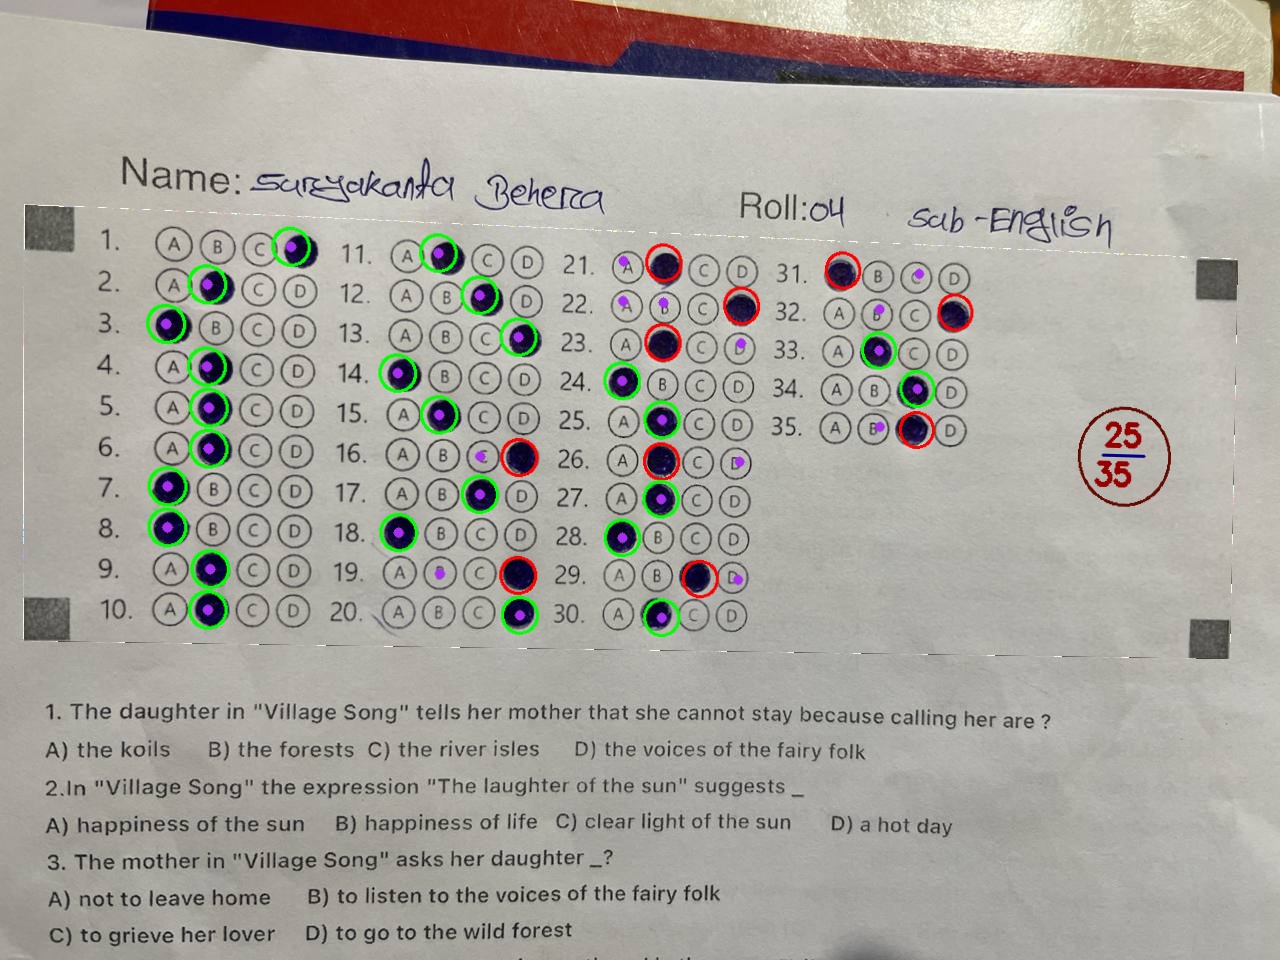 Name: Suryakanta Behera Roll:04 Sub-English
1. A B C 11. A C D 21. A C D 31. B C D
2. A C D 12. A B D 22. A B C 32. A B C
3. B C D 13. A B C 23. A C D 33. A C D
4. A C D 14. B C D 24. B C D 34. A B D
5. A C D 15. A C D 25. A C D 35. A B D
6. A C D 16. A B C 26. A C D
7. B C D 17. A B D 27. A C D
8. B C D 18. B C D 28. B C D
9. A C D 19. A B C 29. A B D
10. A C D 20. A B C 30. A C D
25
35
1. The daughter in "Village Song" tells her mother that she cannot stay because calling her are ?
A) the koils B) the forests C) the river isles D) the voices of the fairy folk
2.In "Village Song" the expression "The laughter of the sun" suggests _
A) happiness of the sun B) happiness of life C) clear light of the sun D) a hot day
3. The mother in "Village Song" asks her daughter _?
A) not to leave home B) to listen to the voices of the fairy folk
C) to grieve her lover D) to go to the wild forest